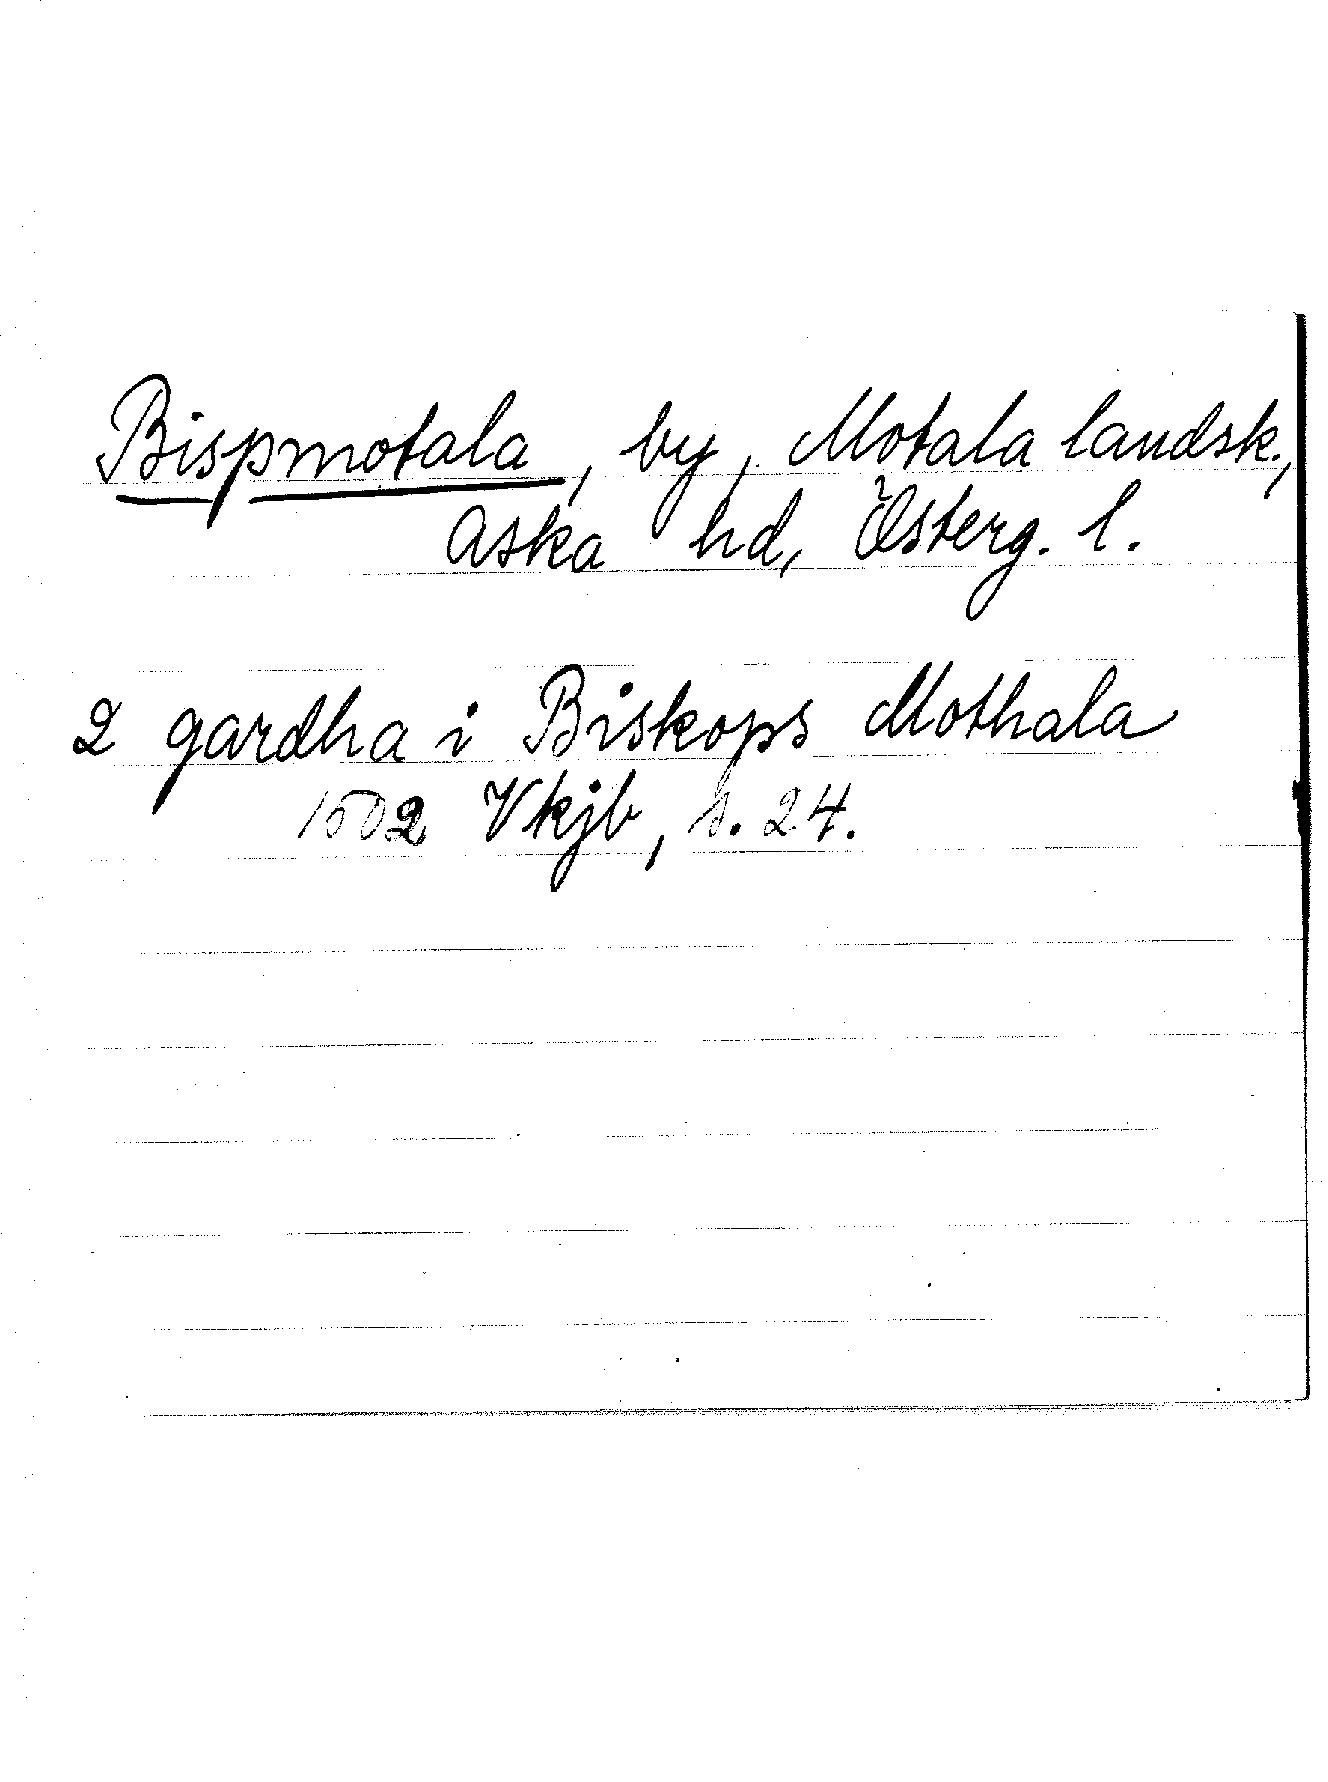 Bispmotala, by, Motala landsk.,
Aska hd, Österg. l.
2 gardha i Biskops Mothala
1502 Vkjb, s. 24.